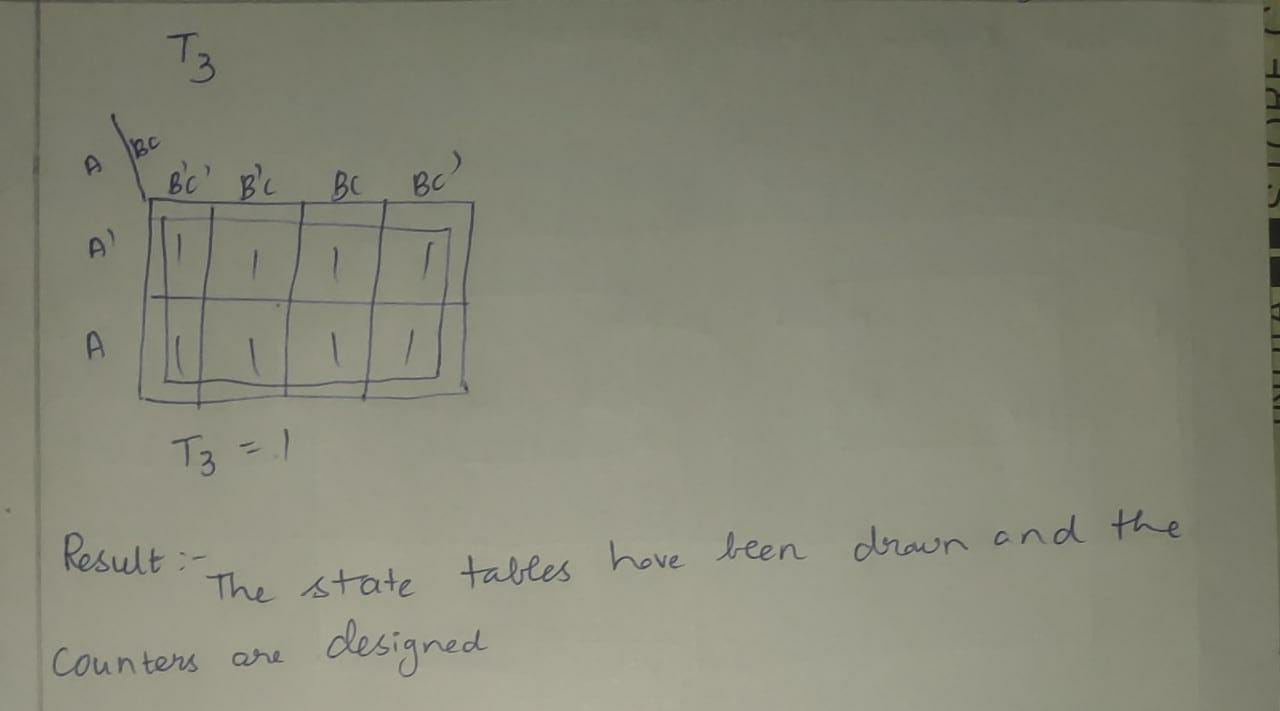 T3
A \ BC
B'C' B'C BC BC'
A' 1 1 1 1
A 1 1 1 1
T3 = 1
Result :- The state tables have been drawn and the
Counters are designed